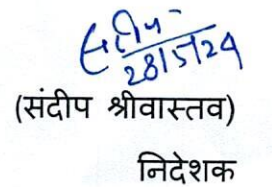 संदीप
28/5/24
(संदीप श्रीवास्तव)
निदेशक